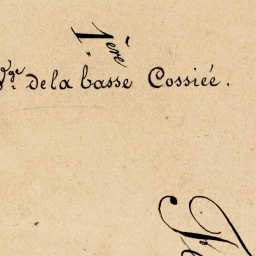 1.ère
V.ge de la basse Cossiée.